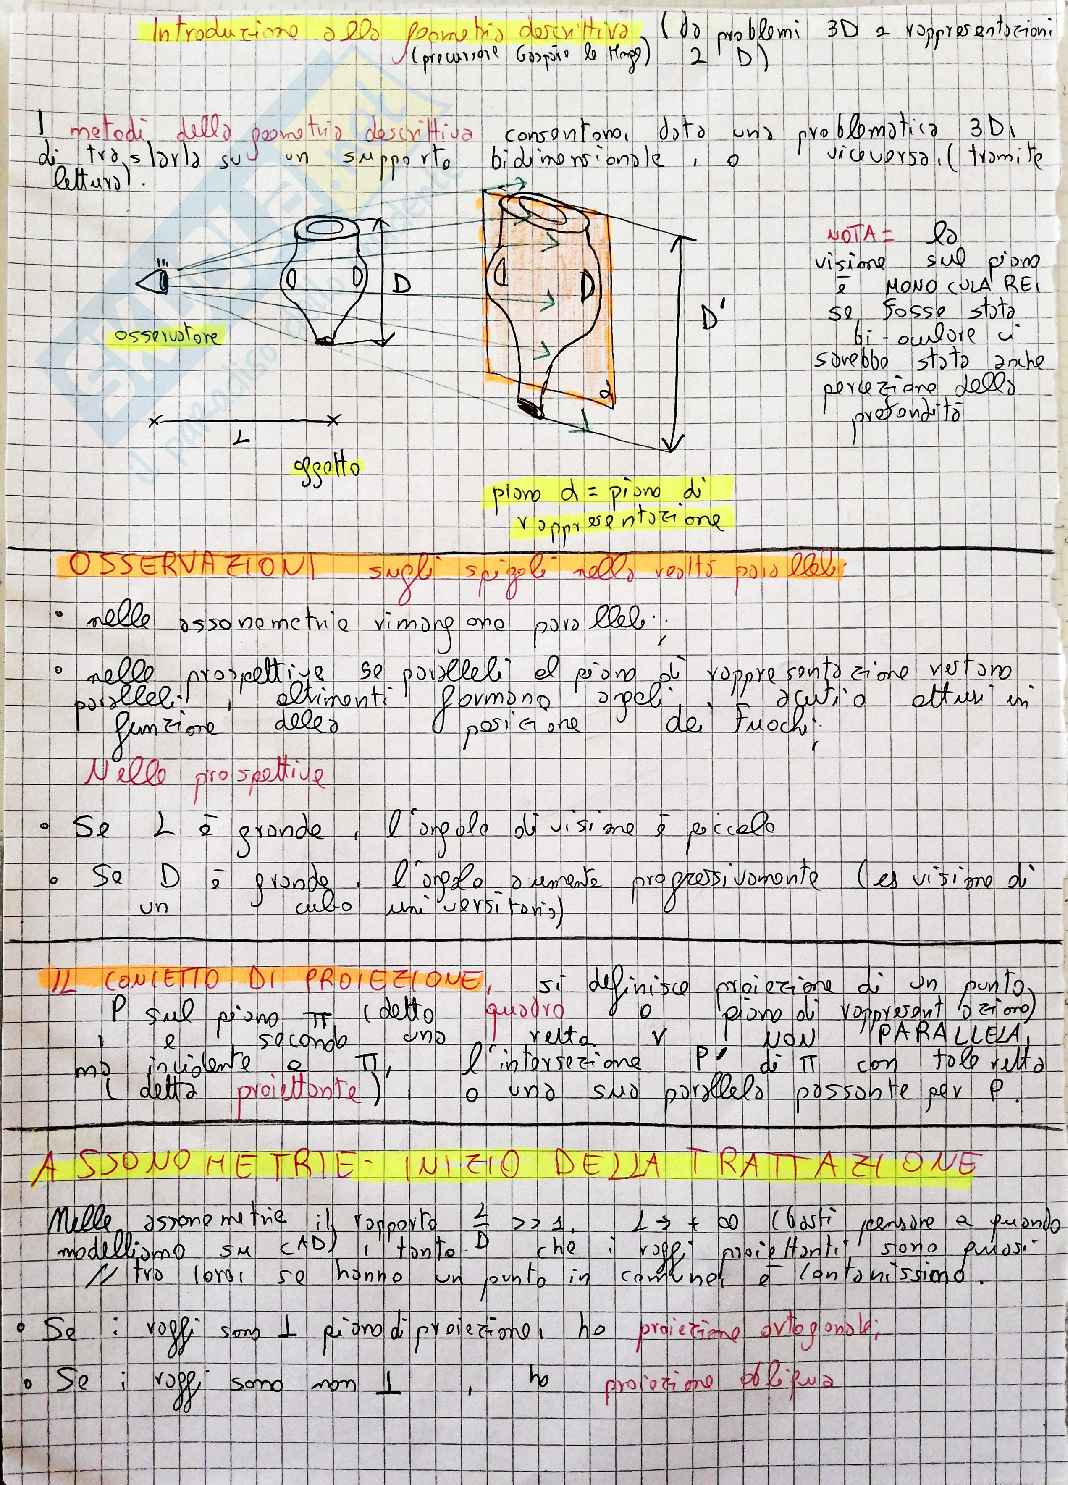 Introduzione alla geometria descrittiva (da problemi 3D a rappresentazioni
(precursore Gaspare le Monge) 2 D)
I metodi della geometria descrittiva consentono, data una problematica 3D,
di traslarla su un supporto bidimensionale, o viceversa, (tramite
lettura).
NOTA = la
visione sul piano
è MONOCULARE;
se fosse stata
bi-oculare ci
sarebbe stata anche
percezione della
profondità
osservatore
D
D'
α
L
oggetto
piano α = piano di
rappresentazione
OSSERVAZIONI sugli spigoli nella realtà paralleli:
• nelle assonometrie rimangono paralleli;
• nelle prospettive se paralleli al piano di rappresentazione restano
paralleli, altrimenti formano angoli acuti o ottusi in
funzione della posizione dei fuochi;
Nelle prospettive
• Se L è grande, l'angolo di visione è piccolo
• Se D è grande, l'angolo aumenta progressivamente (es visione di
un cubo universitario)
IL CONCETTO DI PROIEZIONE, si definisce proiezione di un punto
P sul piano π (detto quadro o piano di rappresentazione)
, e secondo una retta r, NON PARALLELA,
ma incidente a π, l'intersezione P' di π con tale retta
(detta proiettante), o una sua parallela passante per P.
ASSONOMETRIE - INIZIO DELLA TRATTAZIONE
Nelle assonometrie il rapporto L/D >> 1, L → + ∞ (basti pensare a quando
modelliamo su CAD), tanto che i raggi proiettanti sono quasi
// tra loro, se hanno un punto in comune, è lontanissimo.
• Se i raggi sono ⊥ piano di proiezione, ho proiezione ortogonale;
• Se i raggi sono non ⊥, ho proiezione obliqua